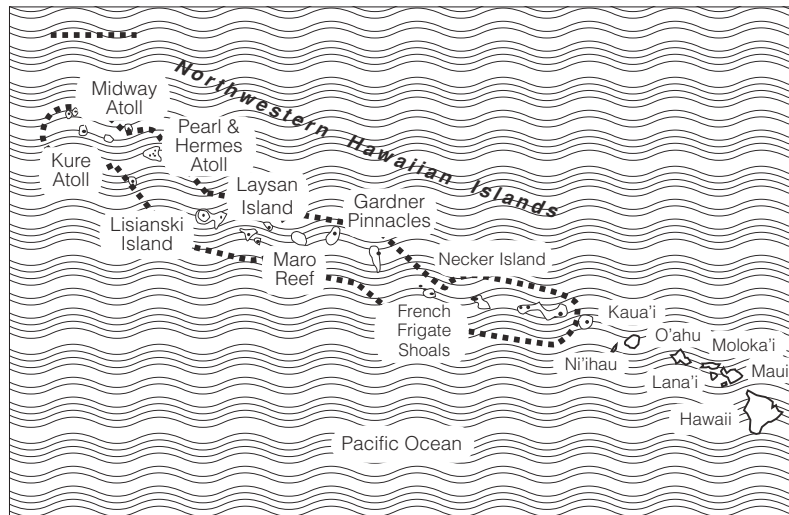 Northwestern Hawaiian Islands
Midway
Atoll
Pearl &
Hermes
Atoll
Kure
Atoll
Laysan
Island
Lisianski
Island
Gardner
Pinnacles
Maro
Reef
Necker Island
French
Frigate
Shoals
Kaua'i
Ni'ihau
O'ahu
Moloka'i
Lana'i
Maui
Hawaii
Pacific Ocean